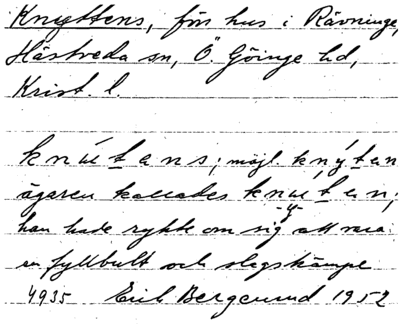 Knyttens, förr hus i Rävninge,
Hästveda sn, Ö. Göinge hd,
Krist. l.
knút ans; möjl. knýtan
ägaren kallades knútan;
-y-
han hade rykte om sig att vara
en fyllbult och slagskämpe
4935 Erik Bergelund 1952